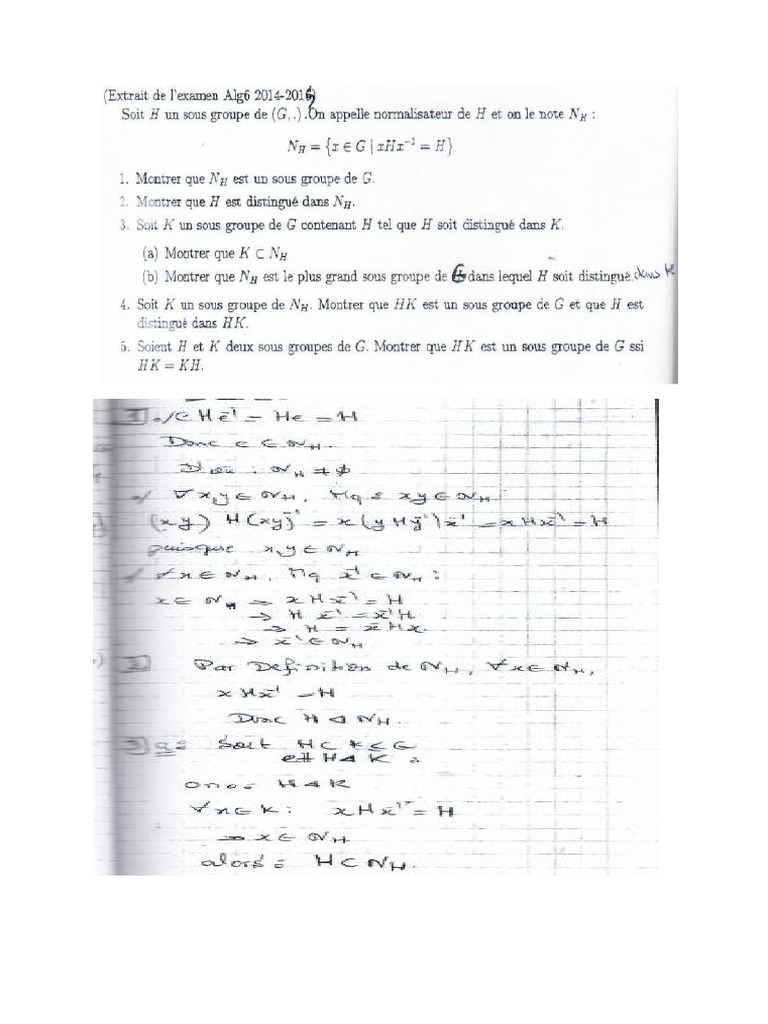 (Extrait de l'examen Alg6 2014-2015)
Soit H un sous groupe de (G, .) .On appelle normalisateur de H et on le note N_H :
N_H = {x ∈ G | xHx⁻¹ = H}
1. Montrer que N_H est un sous groupe de G.
2. Montrer que H est distingué dans N_H.
3. Soit K un sous groupe de G contenant H tel que H soit distingué dans K.
(a) Montrer que K ⊂ N_H
(b) Montrer que N_H est le plus grand sous groupe de G dans lequel H soit distingué. dans K
4. Soit K un sous groupe de N_H. Montrer que HK est un sous groupe de G et que H est
distingué dans HK.
5. Soient H et K deux sous groupes de G. Montrer que HK est un sous groupe de G ssi
HK = KH.
1) ./ e H e⁻¹ = He = H
Donc e ∈ N_H.
D'où : N_H ≠ ∅
./ ∀x,y ∈ N_H, Mq : xy ∈ N_H.
(xy) H (xy)⁻¹ = x(yHy⁻¹)x⁻¹ = xHx⁻¹ = H
puisque x,y ∈ N_H
./ ∀x ∈ N_H, Mq x⁻¹ ∈ N_H :
x ∈ N_H ⇒ xHx⁻¹ = H
⇒ Hx⁻¹ = x⁻¹H.
⇒ H = x⁻¹Hx.
⇒ x⁻¹ ∈ N_H
2) Par Definition de N_H, ∀x ∈ N_H,
xHx⁻¹ = H
Donc H ⊲ N_H.
3) a: Soit H ⊂ K ≤ G
et H ⊲ K :
on a: H ⊲ K
∀x ∈ K : xHx⁻¹ = H
⇒ x ∈ N_H
alors : H ⊂ N_H.